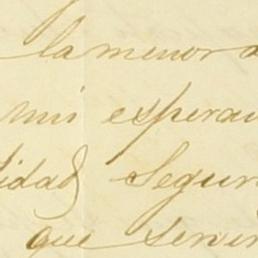 la menor
mis espera
idad Segur
que servi